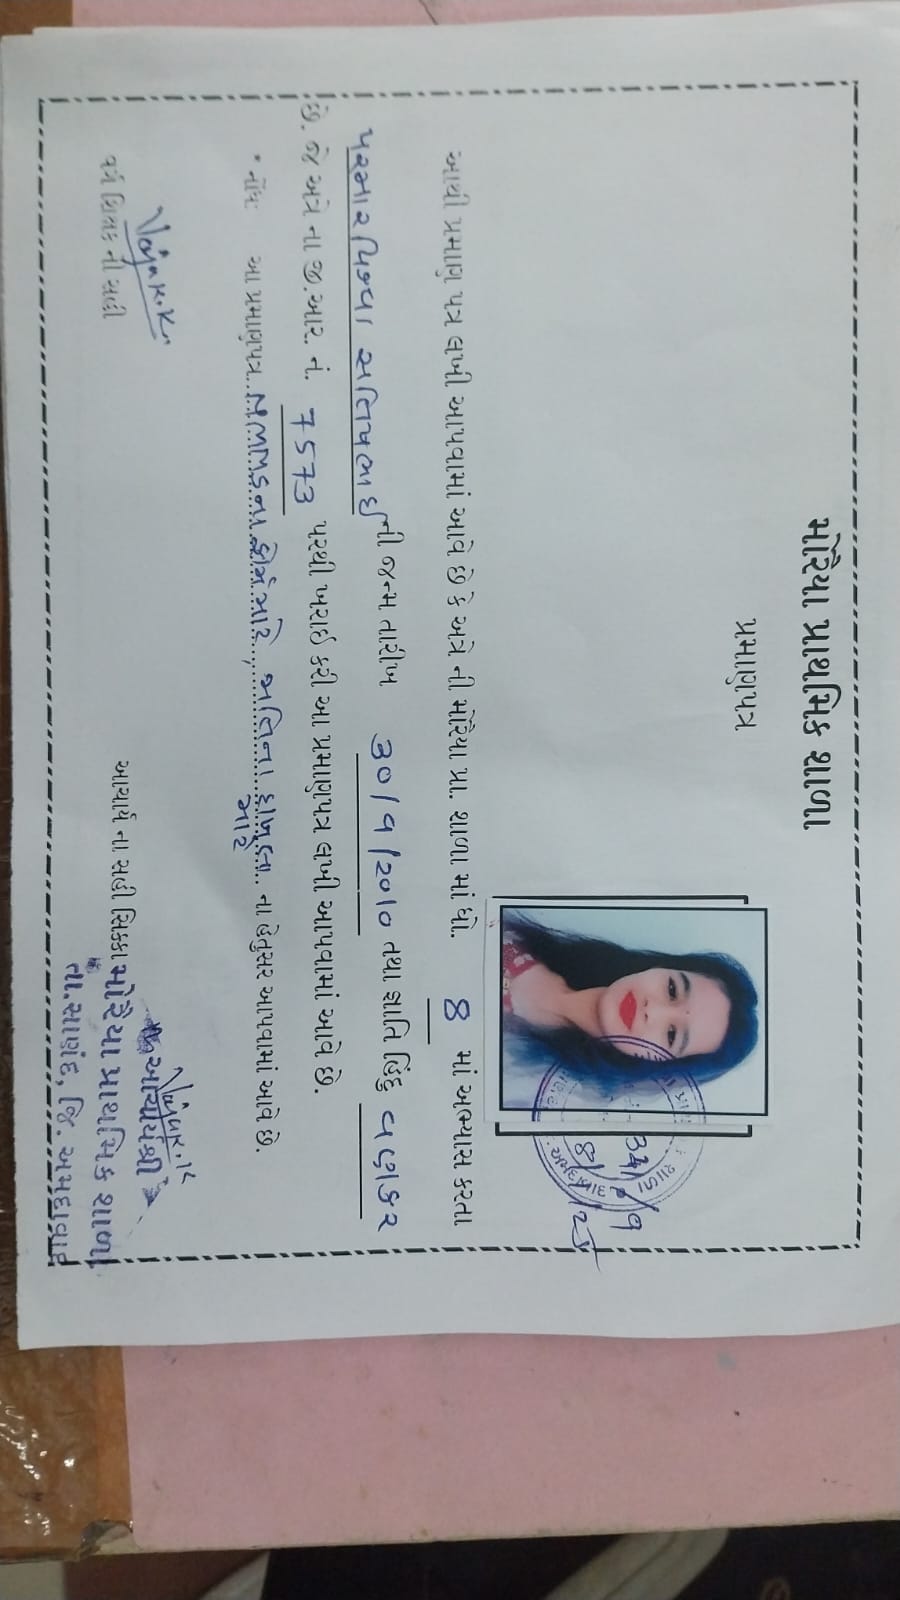 મોરૈયા પ્રાથમિક શાળા
પ્રમાણપત્ર
આથી પ્રમાણ પત્ર લખી આપવામાં આવે છે કે અત્રે ની મોરૈયા પ્રા. શાળા માં ધો. 8 માં અભ્યાસ કરતા
પરમાર દિવ્યા સતિષભાઈ ની જન્મ તારીખ 30/9/2010 તથા જ્ઞાતિ હિંદુ વણકર
છે. જે અત્રે ના જી.આર. નં. 7573 પરથી ખરાઈ કરી આ પ્રમાણપત્ર લખી આપવામાં આવે છે.
* નોંધ: આ પ્રમાણપત્ર NMMS ના ફોર્મ માટે, જાતિના દાખલા માટે ના હેતુસર આપવામાં આવે છે.
વર્ગ શિક્ષક ની સહી
આચાર્ય ના સહી સિક્કા
આચાર્યશ્રી
મોરૈયા પ્રાથમિક શાળા
તા. સાણંદ, જિ. અમદાવાદ